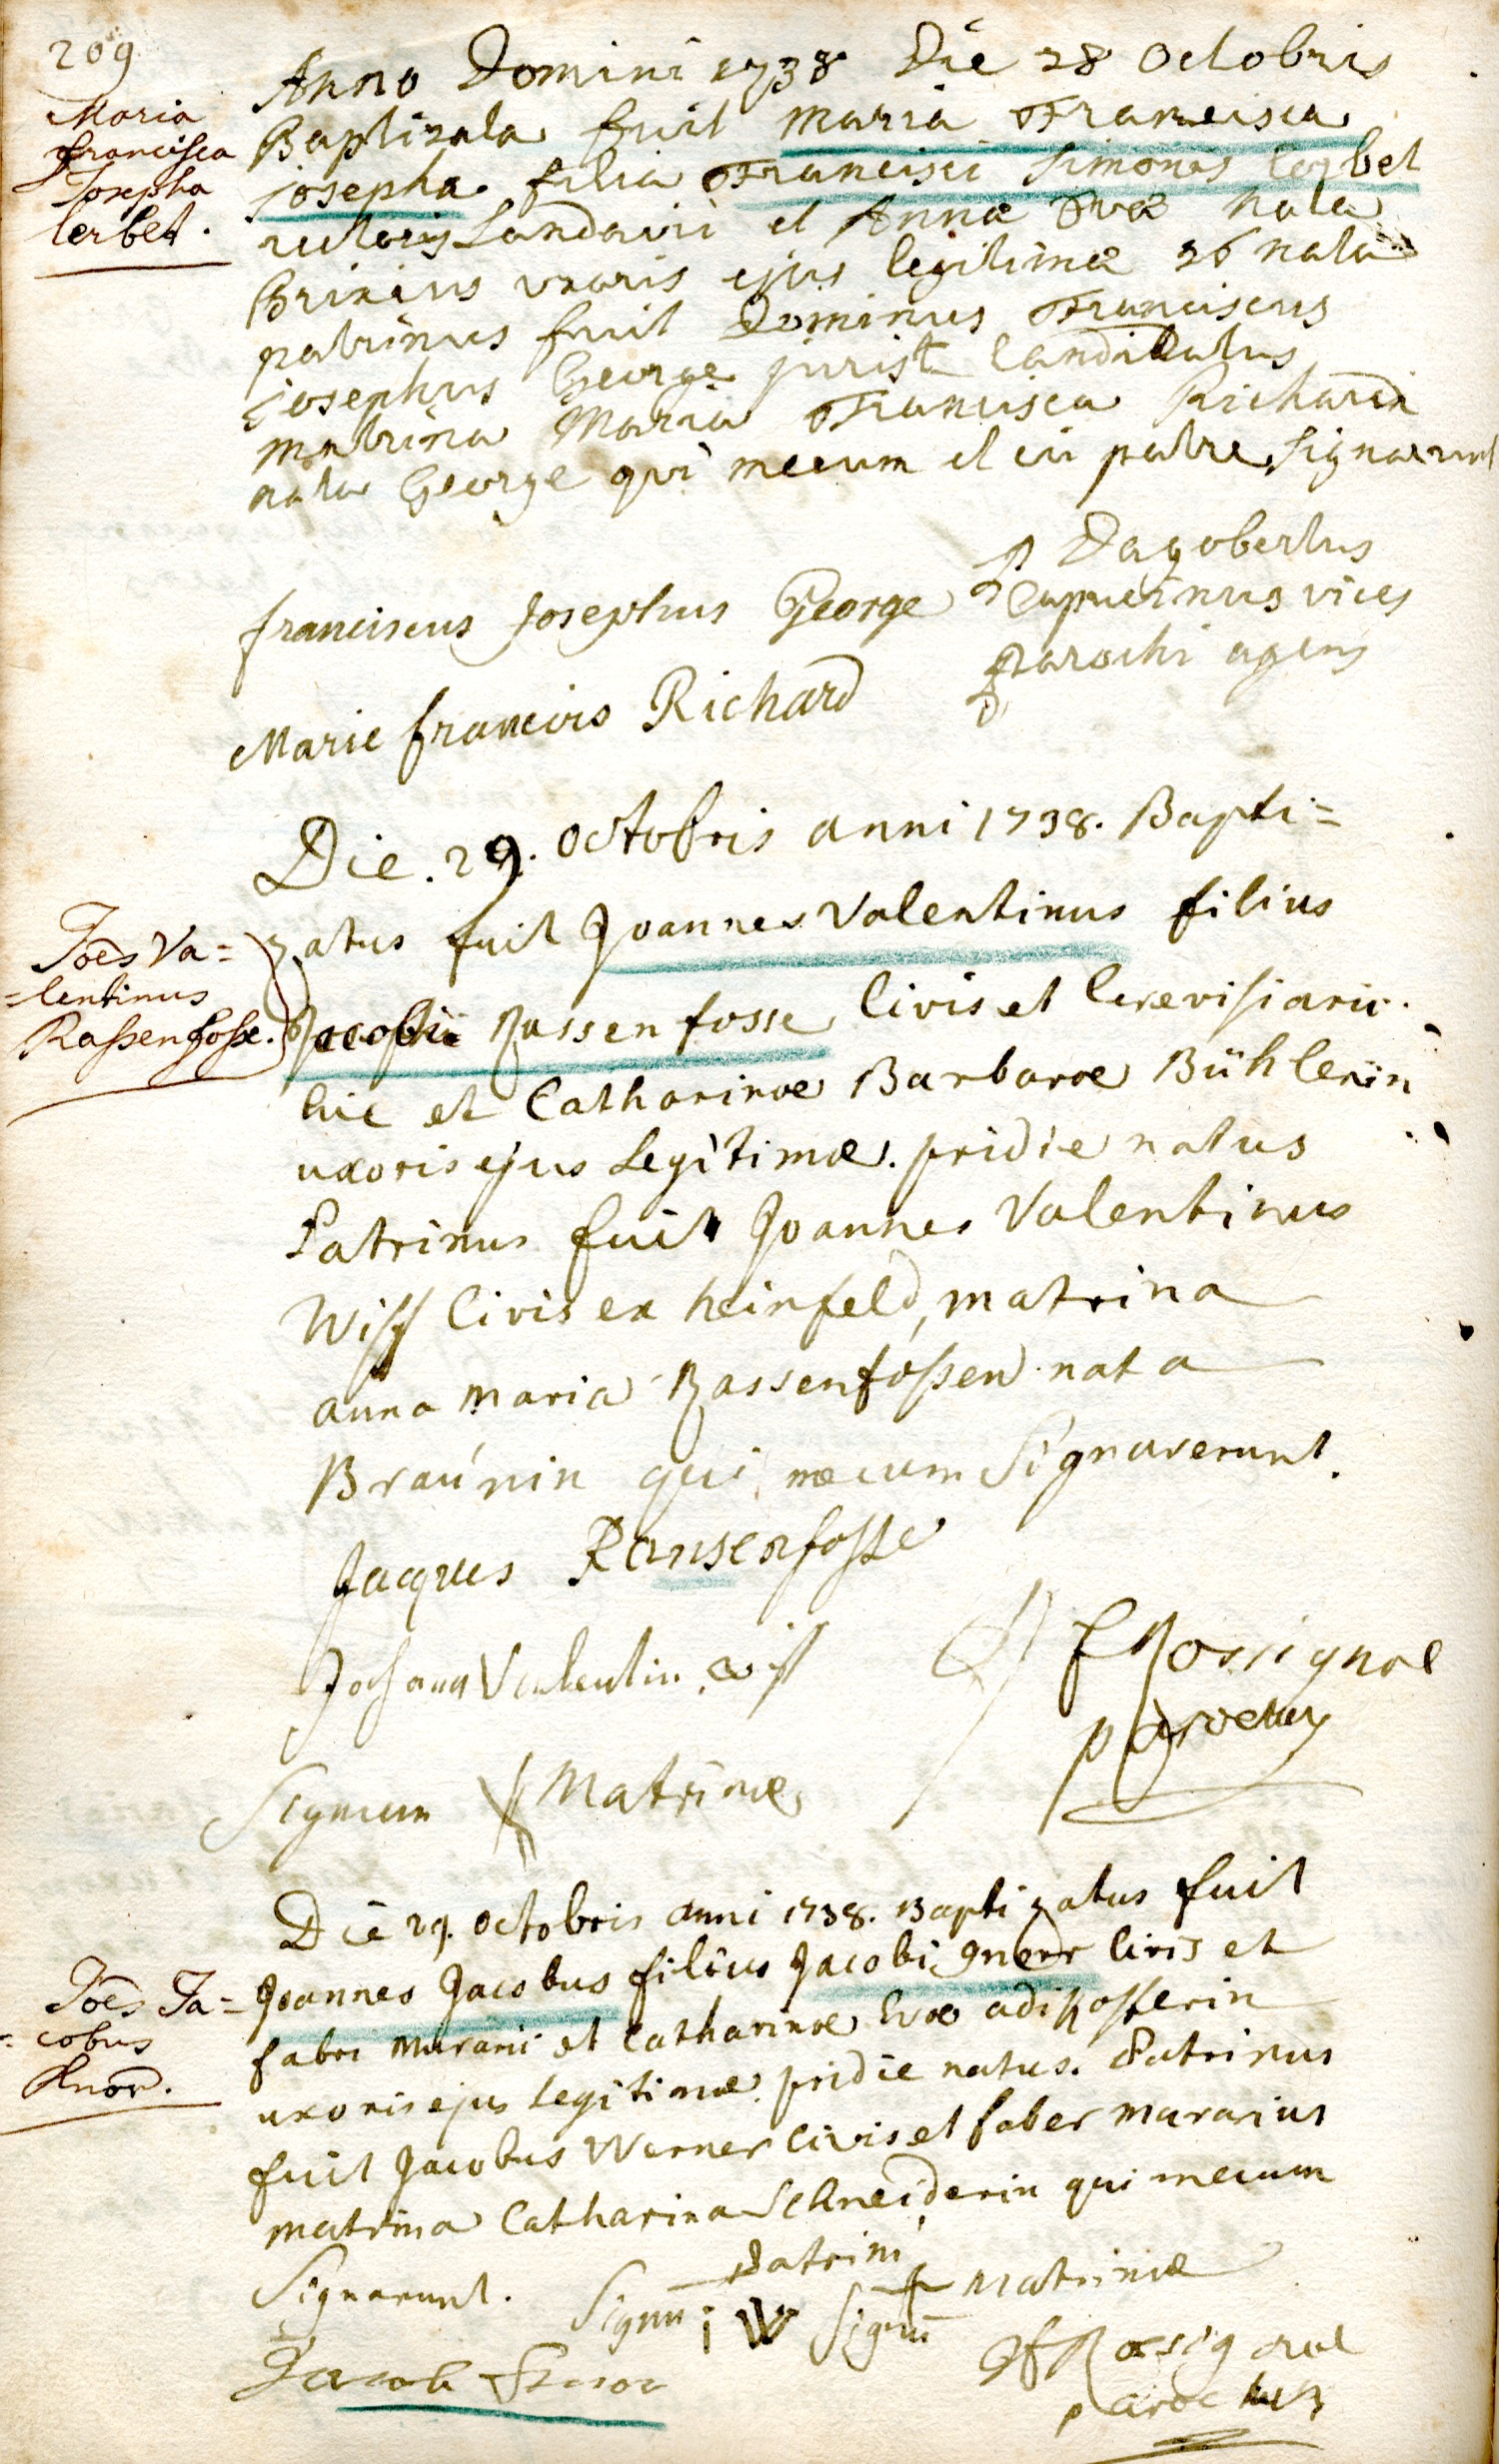 209
Maria
Francisca
Josepha
lerbet.
Anno Domini 1738 Die 28 Octobris
Baptizata fuit Maria Francisca
josepha filia Francisci Simonis lerbet
Landavii et Annæ Evæ nata
uxoris ejus legitimæ 26 nata
patrinus fuit Dominus Franciscus
josephus George jurist Candidatus
matrina Maria Francisca Richard
nata George qui mecum et cu patre signarunt
P Dagobertus
Capucinus vices
parochi agens
franciscus Josephus George
Marie francois Richard
Joes Va=
=lentinus
Raßenfoße.
Die. 29. octobris anni 1738. Bapti=
zatus fuit Joannes Valentinus filius
Jacobi Rassenfosse Civis et Cerevisiarii
hic et Catharinæ Barbaræ Bühlerin
uxoris ejus Legitimæ. pridie natus
Patrinus fuit Joannes Valentinus
Wiss Civis ex heinfeld, matrina
anna Maria Rassenfoßen nata
Braúnin qui mecum Signaverunt.
Jacques Ransenfosse
Johann Valentin wiss
F Rossignol
parochus
Signum Matrinæ
Joes Ja=
=cobus
Knorr.
Die 29. octobris anni 1738. Baptizatus fuit
Joannes Jacobus filius Jacobi gnorr Civis et
fabri Murarii et Catharinæ Evæ
uxoris ejus Legitimæ. pridie natus. Patrinus
fuit Jacobus Werner Civis et faber murarius
matrina Catharina Schneiderin qui mecum
Signarunt.
Signu i W patrini
Signū + Matrinæ
Jacob Knor
F Rossignol
parochus